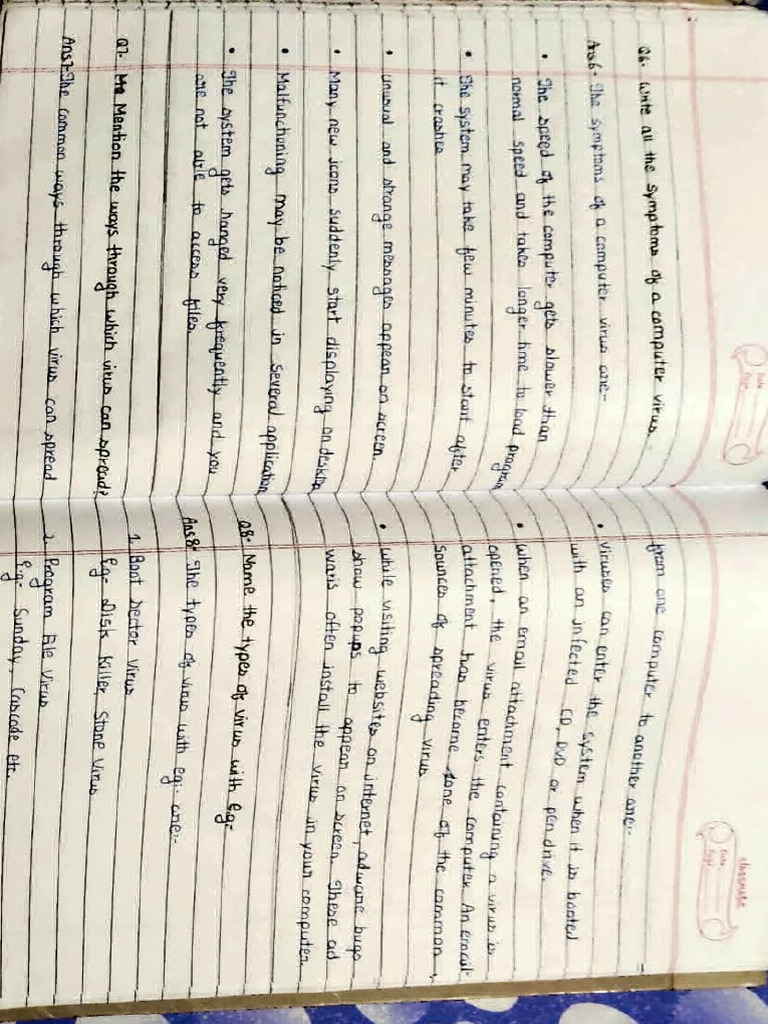 Date
Page
Q6- Write all the symptoms of a computer virus.
Ans6- The symptoms of a computer virus are-
• The speed of the computer gets slower than
normal speed and takes longer time to load program
• The system may take few minutes to start after
it crashes
• unusual and strange messages appear on screen.
• Many new icons suddenly start displaying on desktop
• Malfunctioning may be noticed in several application
• The system gets hanged very frequently and you
are not able to access files.
Q7- Mention the ways through which virus can spread?
Ans7- The common ways through which virus can spread
classmate
Date
Page
from one computer to another are:-
• viruses can enter the system when it is booted
with an infected CD, DVD or pen drive.
• when an email attachment containing a virus is
opened, the virus enters the computer. An email-
attachment has become one of the common
sources of spreading virus
• while visiting websites on internet, adware bugs
show popups to appear on screen. These ad
waris often install the virus in your computer.
Q8- Name the types of virus with eg-
Ans8- The types of virus with eg:- are:-
1. Boot Sector Virus
Eg- Disk Killer, Stone Virus
2. Program File Virus
Eg- Sunday, Cascade etc.